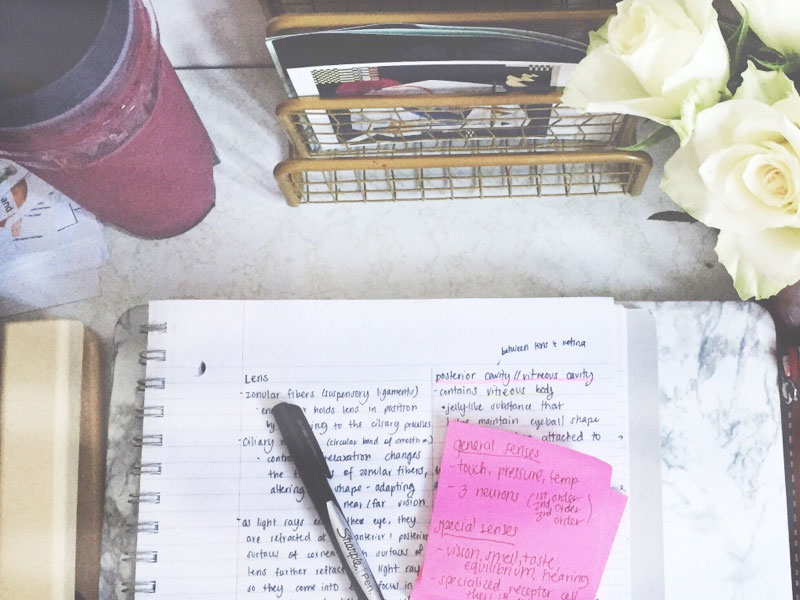 and
between lens & retina
Lens
- zonular fibers (suspensory ligaments)
holds lens in position
by to the ciliary processes
- ciliary (circular band of smooth m.)
- relaxation changes
the of zonular fibers,
altering shape - adapting
near/far vision
- as light rays the eye, they
are refracted at anterior & posterior
surfaces of surfaces of
lens further light rays
so they come into focus
posterior cavity // vitreous cavity
- contains vitreous body
• jelly-like substance that
maintain eyeball shape
attached to
general senses
- touch, pressure, temp
- 3 neurons (1st order
2nd order
3rd order)
special senses
- vision, smell, taste,
equilibrium, hearing
- specialized receptor cell
Sharpie Pen